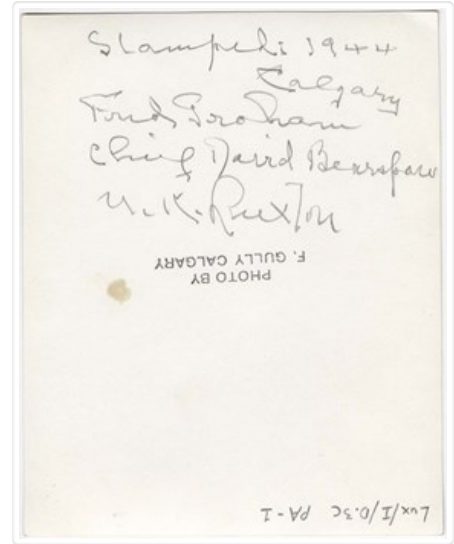 Stampede 1944
Calgary
Chief David Bearspaw
N. K. Luxton
PHOTO BY
F. GULLY CALGARY
Lux/I/D.3c PA-1